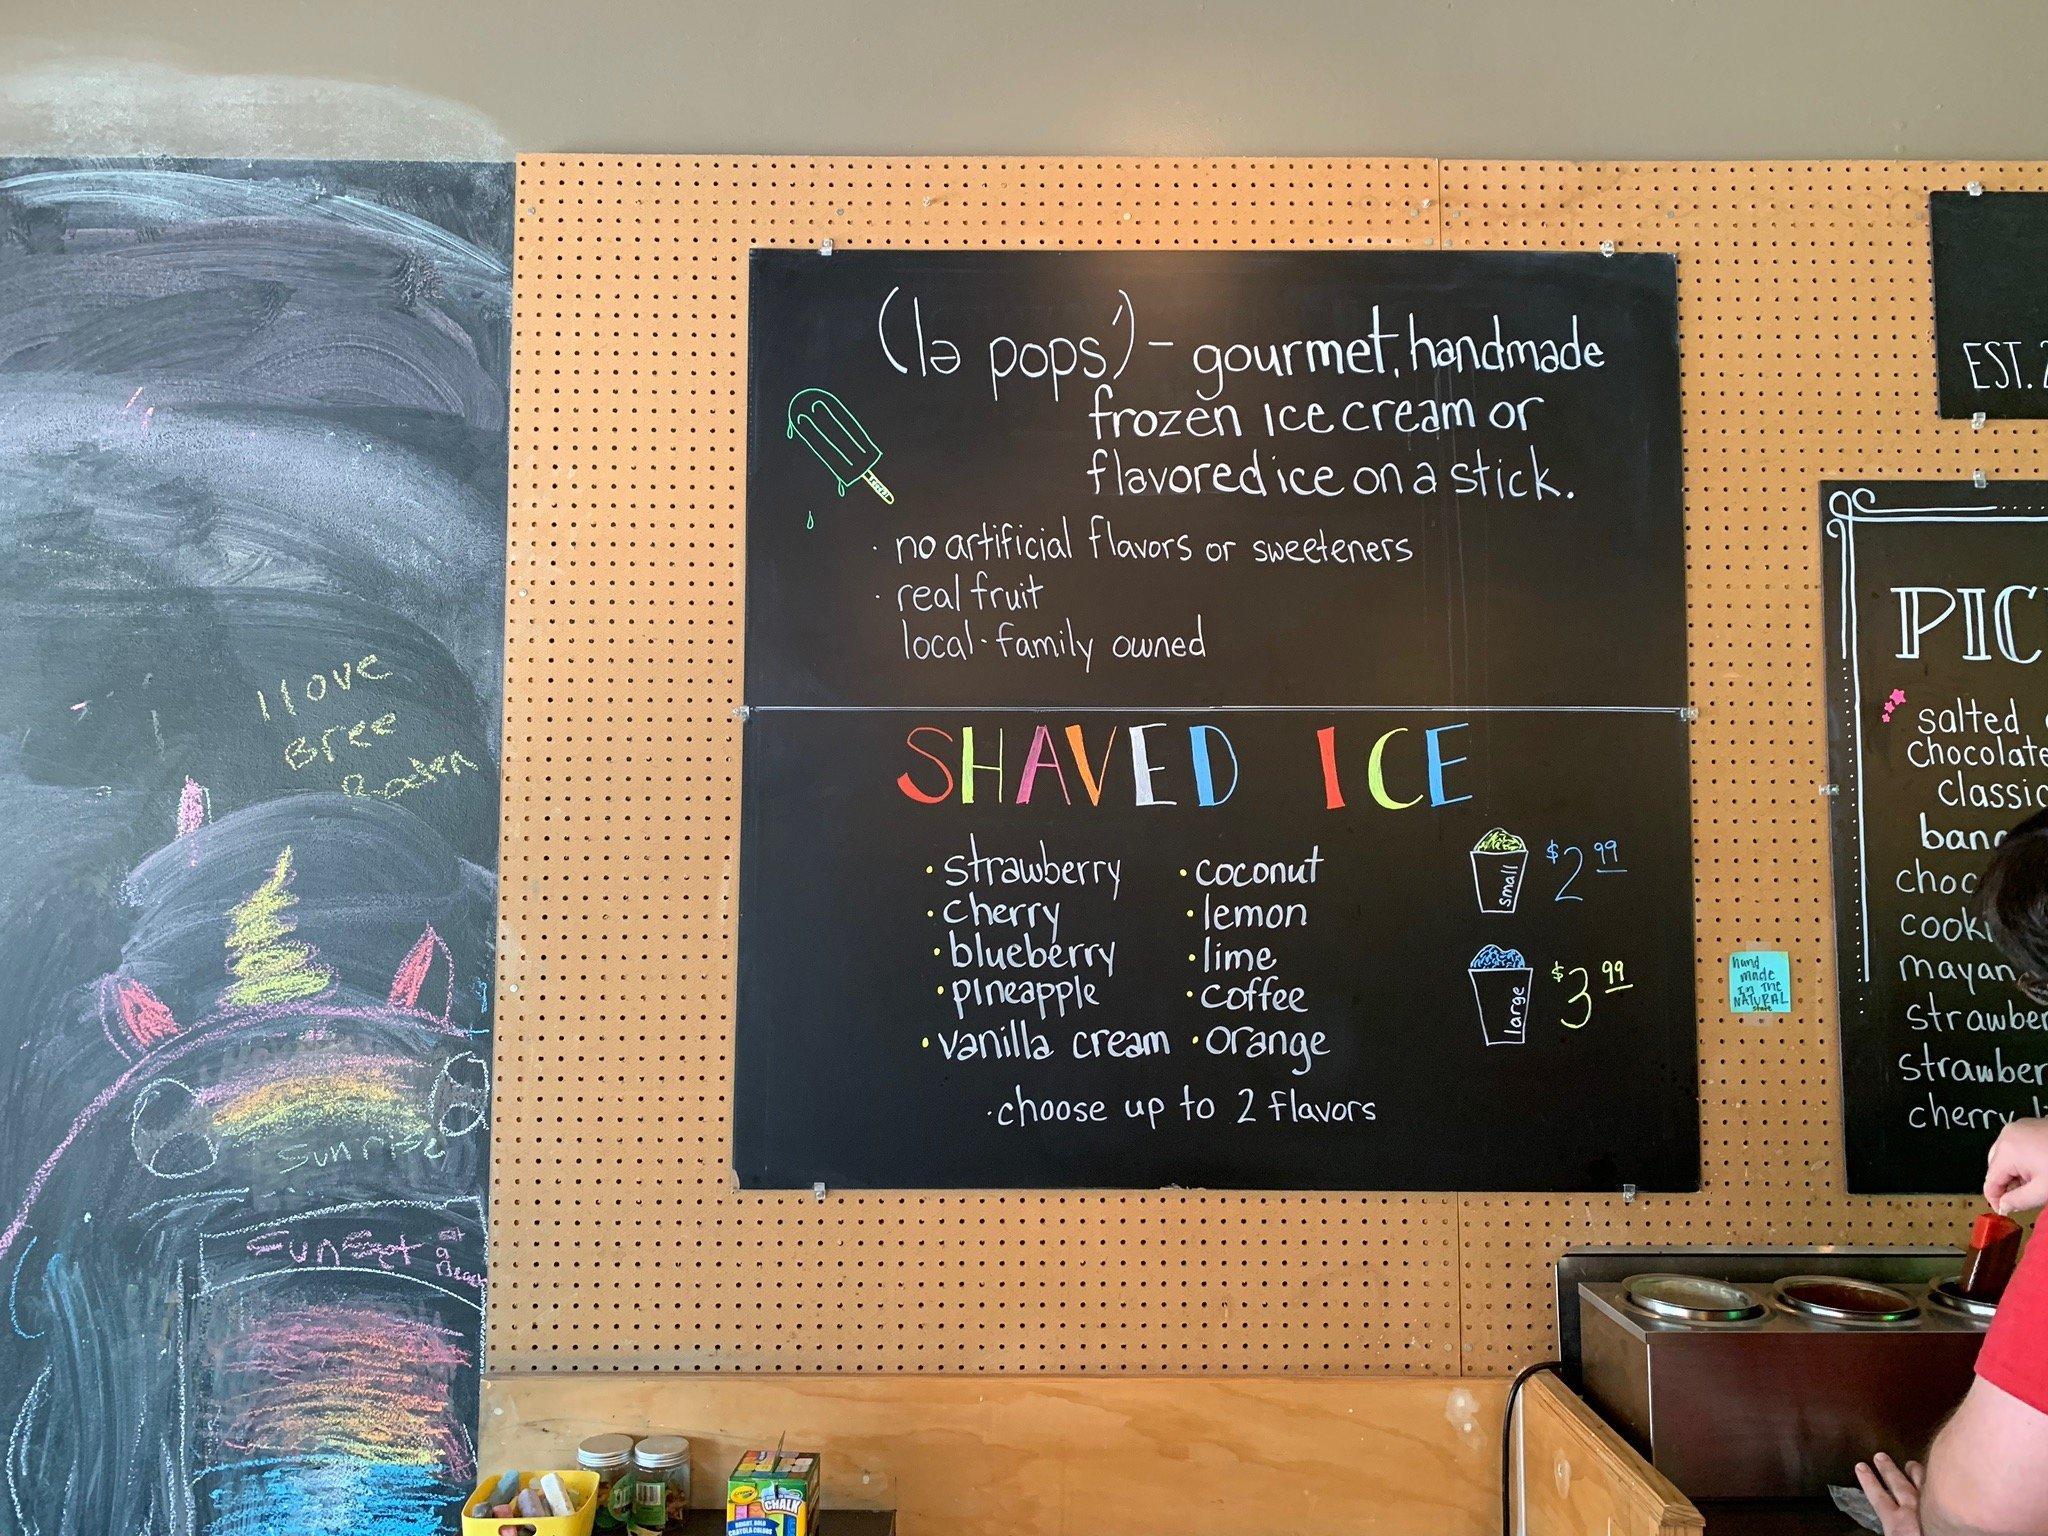 I love
Bree
Sunrise
Sunset at
Beach
(lə pops') - gourmet, handmade
frozen ice cream or
flavored ice on a stick.
· no artificial flavors or sweeteners
· real fruit
local · family owned
SHAVED ICE
• strawberry
• cherry
• blueberry
• pineapple
• vanilla cream
• coconut
• lemon
• lime
• coffee
• orange
· choose up to 2 flavors
small $2 99
large $3 99
hand
made
In THE
NATURAL
state
EST. 2
PIC
salted
chocolate
classic
bana
choc
cooki
mayan
strawber
strawber
cherry
Crayola
CHALK